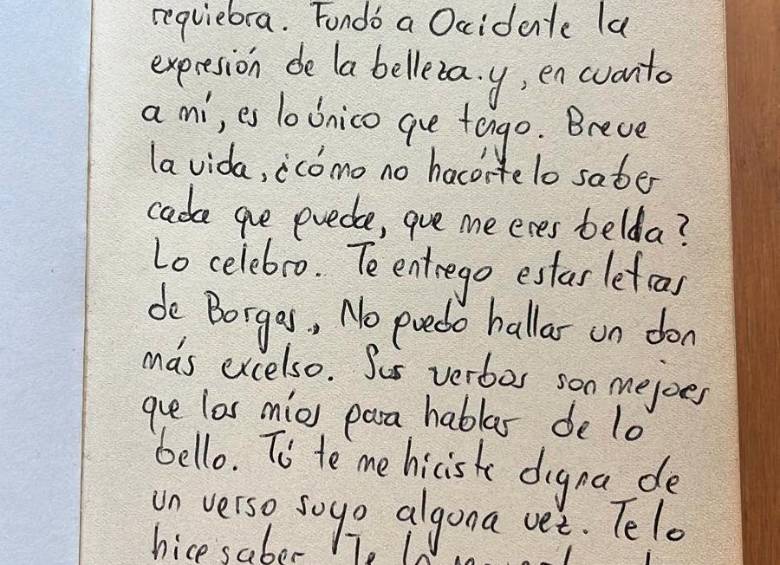 requiebra. Fundó a Occidente la
expresión de la belleza. y, en cuanto
a mí, es lo único que tengo. Breve
la vida, ¿cómo no hacértelo saber
cada que pueda, que me eres bella?
Lo celebro. Te entrego estas letras
de Borges, No puedo hallar un don
más excelso. Sus verbos son mejores
que los míos para hablar de lo
bello. Tú te me hiciste digna de
un verso suyo alguna vez. Te lo
hice saber